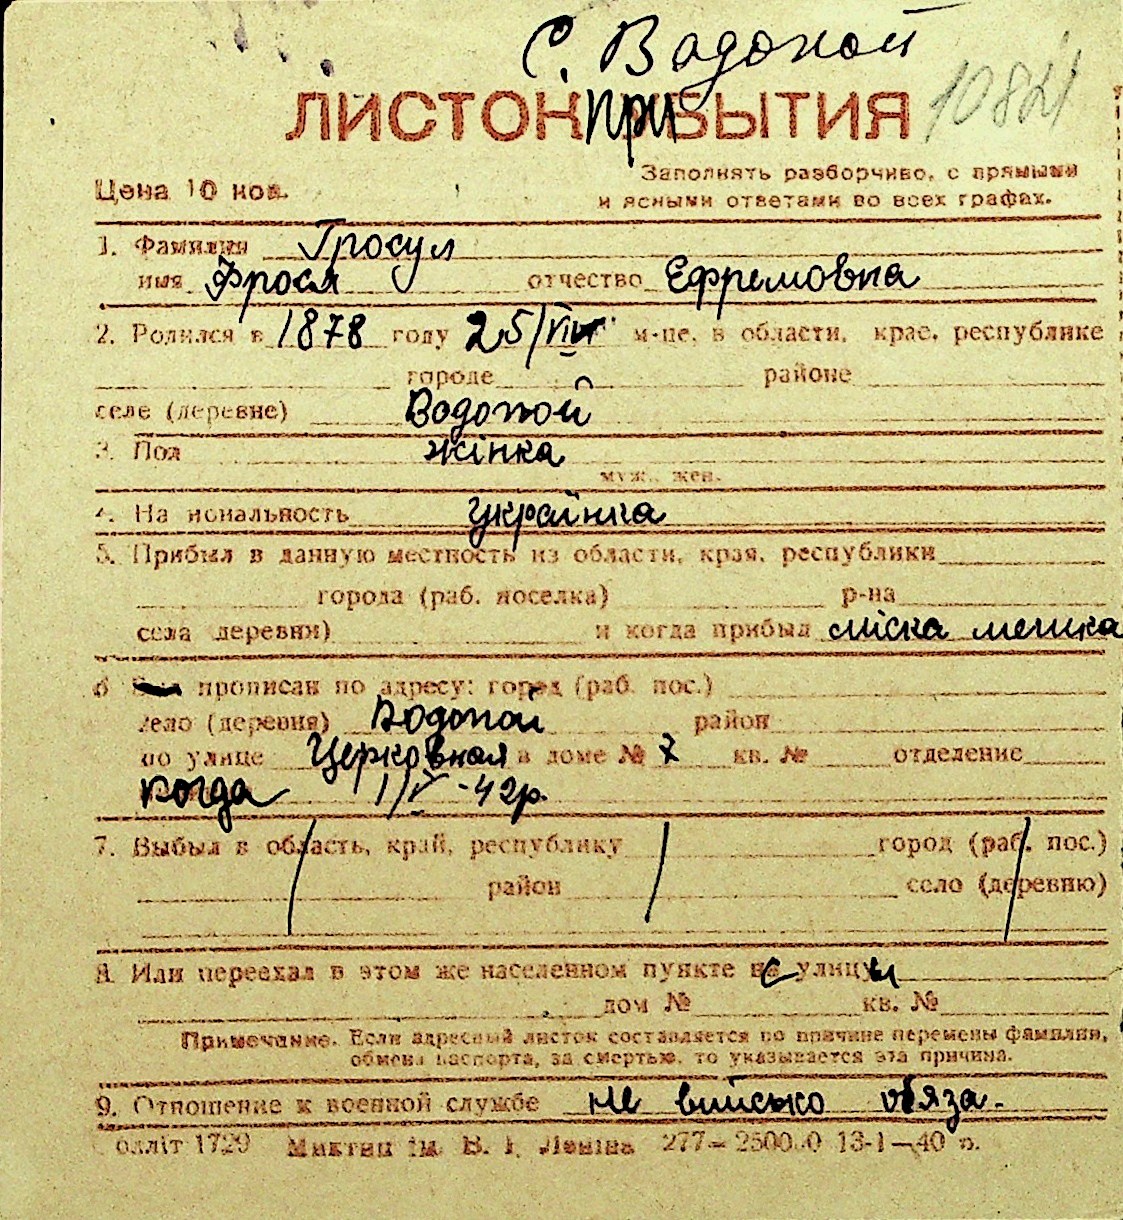 С. Водопой
ЛИСТОК ПРИБЫТИЯ
1084
Заполнять разборчиво, с прямыми
Цена 10 коп.
и ясными ответами во всех графах.
1. Фамилия Гросул
имя Фрося отчество Ефремовна
2. Родился в 1878 году 25/VII м-це, в области, крае, республике
городе районе
селе (деревне) Водопой
3. Пол жінка
муж., жен.
4. Национальность українка
5. Прибыл в данную местность из области, края, республики
города (раб. поселка) р-на
села деревни) и когда прибыл міска мешка
6 прописан по адресу: город (раб. пос.)
село (деревня) Водопой район
по улице Церковная в доме № 7 кв. № отделение
когда 1/V -42р.
7. Выбыл в область, край, республику город (раб. пос.)
район село (деревню)
8. Или переехал в этом же населенном пункте с улицы
дом № кв. №
Примечание. Если адресный листок составляется по причине перемены фамилии,
обмена паспорта, за смертью, то указывается эта причина.
9. Отношение к военной службе не військо обяза.
олліт 1729 Миктип ім. В. І. Леніна 277— 13-1—40 р.